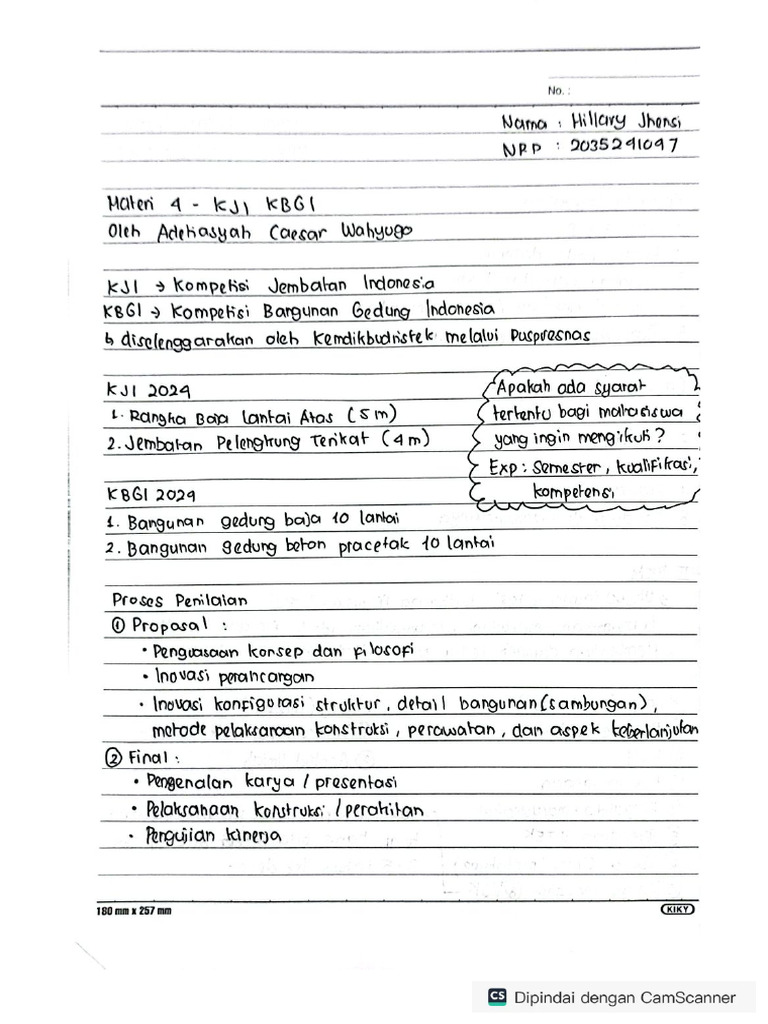 No. :
Nama : Hillary Jhensi
NRP : 2035241097
Materi 4 - KJI KBGI
Oleh Adehiasyah Caesar Wahyugo
KJI → Kompetisi Jembatan Indonesia
KBGI → Kompetisi Bangunan Gedung Indonesia
↳ diselenggarakan oleh Kemdikbudristek melalui Puspresnas
KJI 2024
1. Rangka Baja Lantai Atas (5 m)
2. Jembatan Pelengkung Terikat (4 m)
Apakah ada syarat
tertentu bagi mahasiswa
yang ingin mengikuti ?
Exp : Semester, kualifikasi,
kompetensi
KBGI 2024
1. Bangunan gedung baja 10 lantai
2. Bangunan gedung beton pracetak 10 lantai
Proses Penilaian
① Proposal :
• Penguasaan konsep dan filosofi
• Inovasi perancangan
• Inovasi konfigurasi struktur, detail bangunan (sambungan),
metode pelaksanaan konstruksi, perawatan, dan aspek keberlanjutan
② Final :
• Pengenalan karya / presentasi
• Pelaksanaan konstruksi / perakitan
• Pengujian kinerja
180 mm x 257 mm
KIKY
CS Dipindai dengan CamScanner